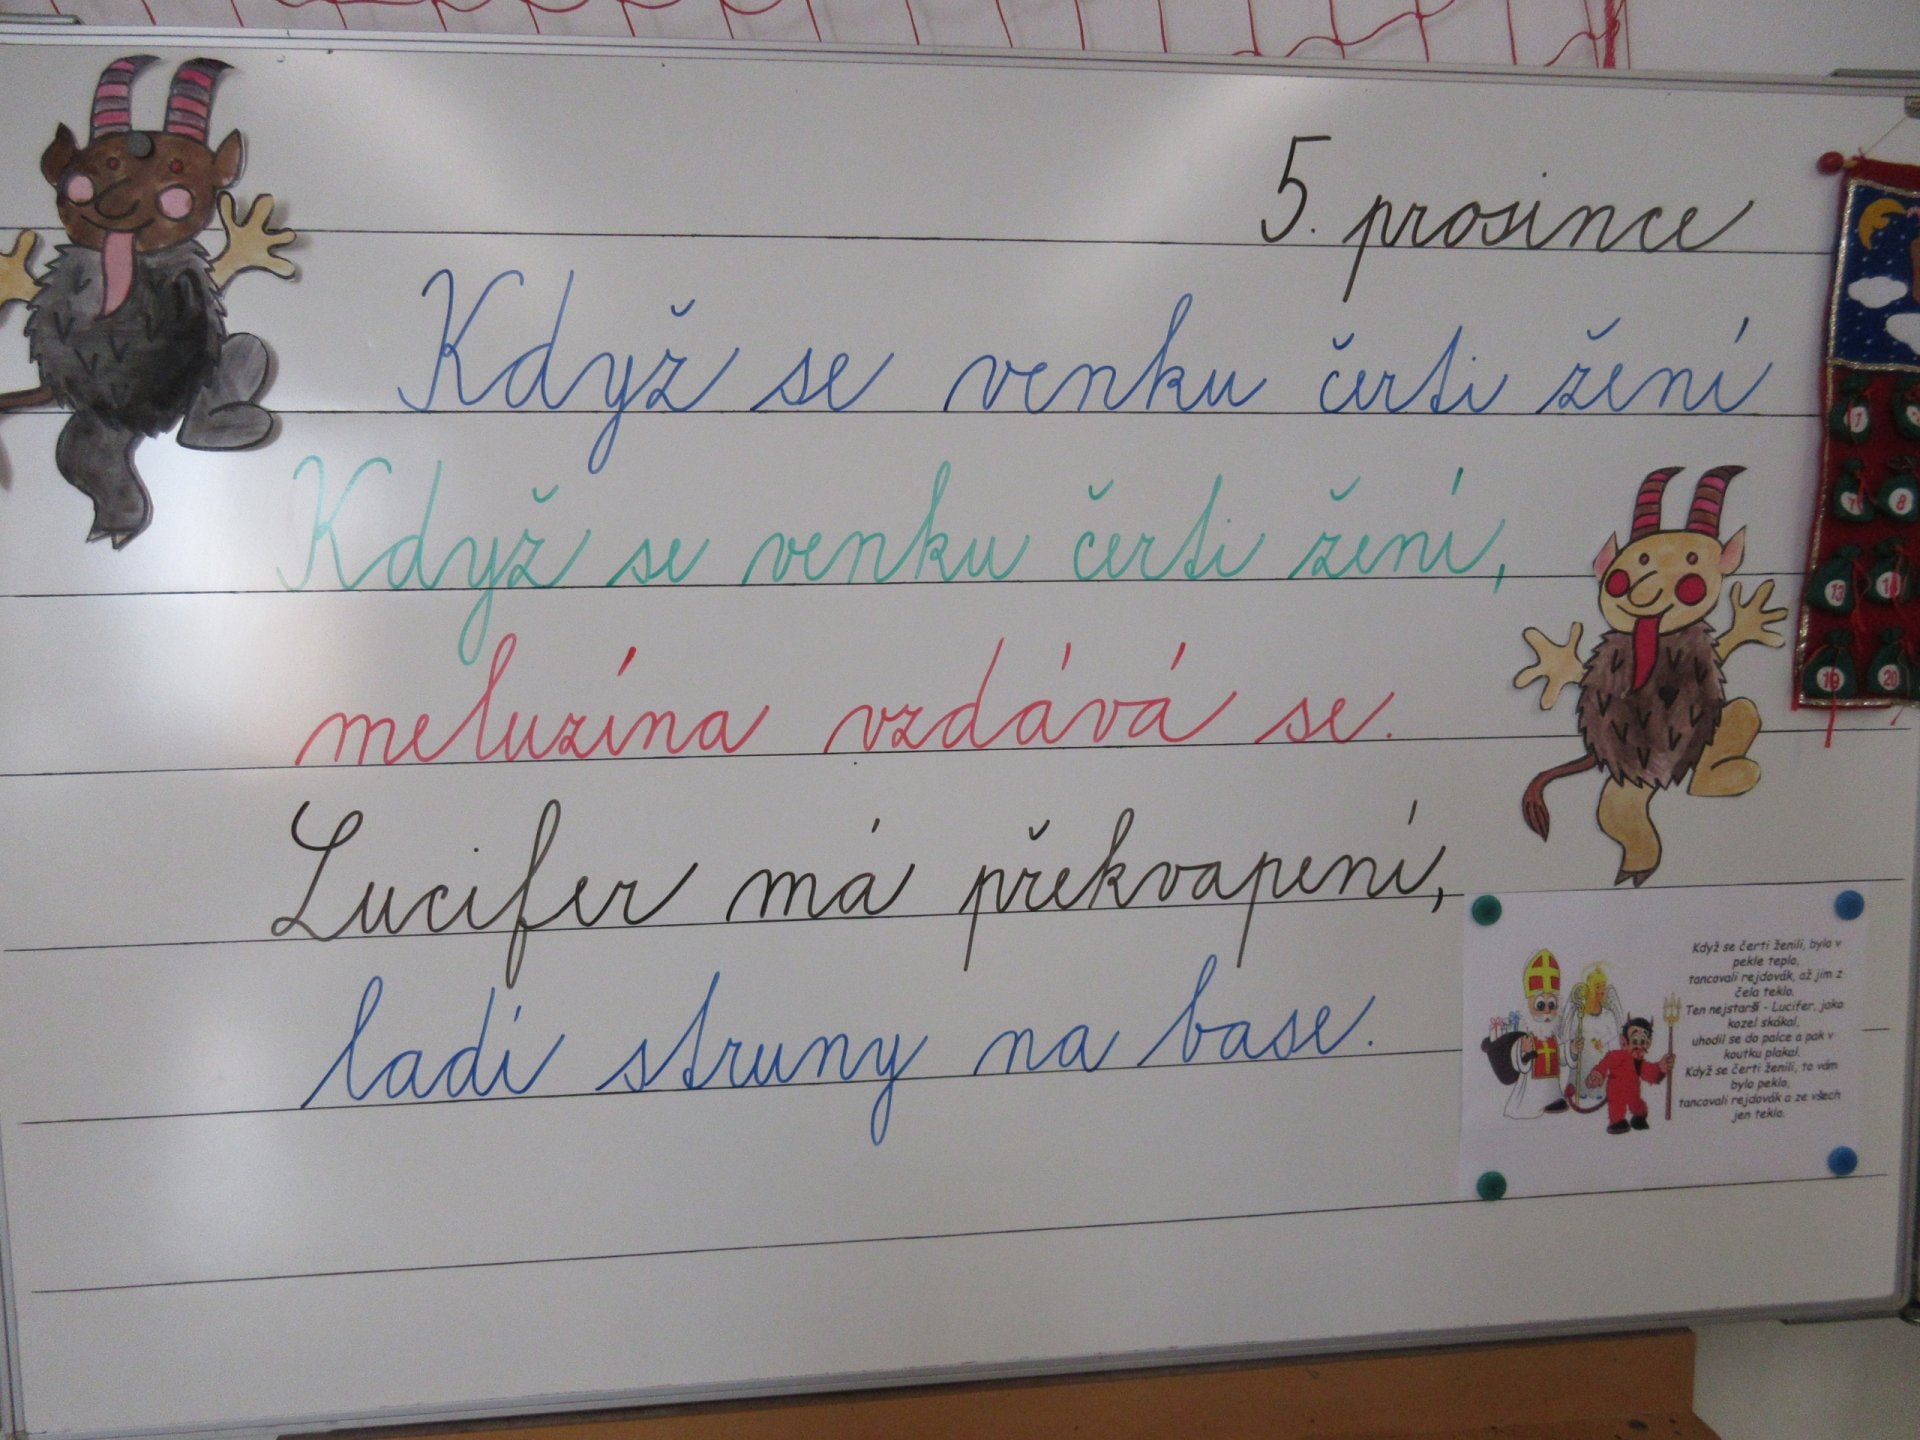 5. prosince
Když se venku čerti žení
Když se venku čerti žení,
meluzína vzdává se.
Lucifer má překvapení,
ladí struny na base.
Když se čerti ženili, bylo v
pekle teplo,
tancovali rejdovák, až jim z
čela teklo.
Ten nejstarší - Lucifer, jako
kozel skákal,
uhodil se do palce a pak v
koutku plakal.
Když se čerti ženili, to vám
bylo peklo,
tancovali rejdovák a ze všech
jen teklo.
1
7
8
13
14
19
20